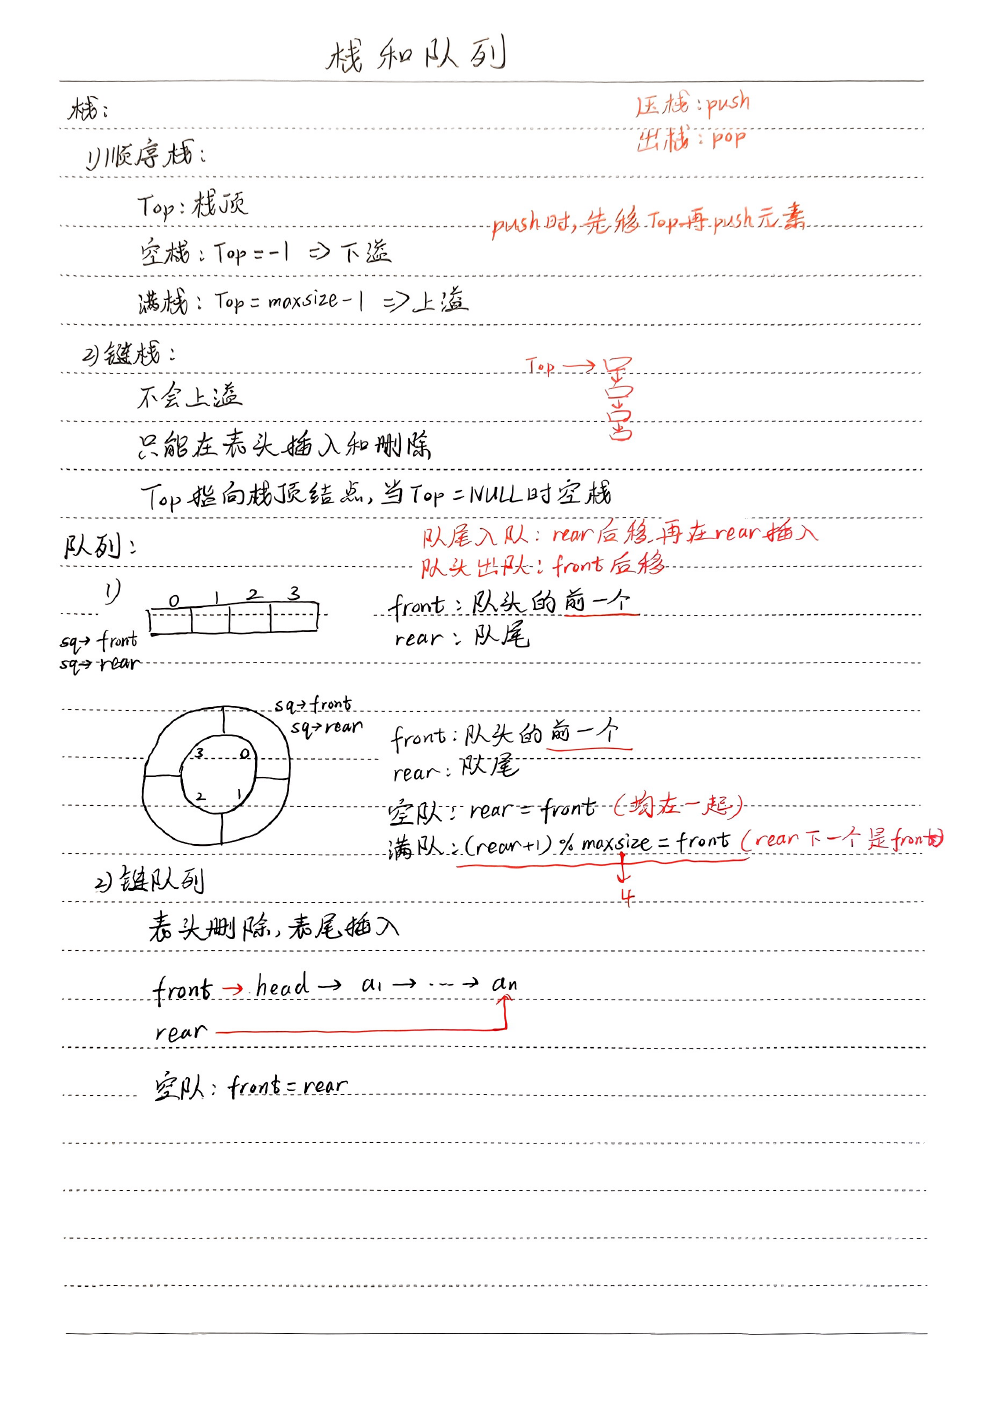 栈和队列
栈：
压栈：push
出栈：pop
1)顺序栈：
Top：栈顶
push时,先移Top再push元素
空栈：Top=-1 => 下溢
满栈：Top=maxsize-1 =>上溢
2)链栈：
Top→
不会上溢
只能在表头插入和删除
Top指向栈顶结点,当Top=NULL时空栈
队列：
队尾入队：rear后移再在rear插入
队头出队：front后移
1)
0 1 2 3
front：队头的前一个
sq→front
rear：队尾
sq→rear
sq→front
sq→rear
3 0
2 1
front：队头的前一个
rear：队尾
空队：rear=front (均在一起)
满队：(rear+1)%maxsize=front (rear下一个是front)
4
2)链队列
表头删除,表尾插入
front→head→a1→…→an
rear
空队：front=rear